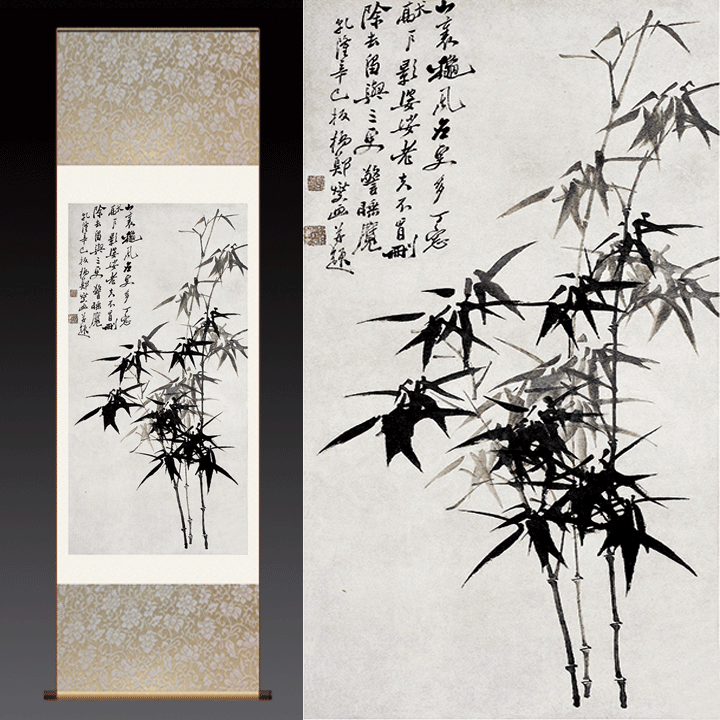 山裏 風 更多 窓
影婆娑老夫不肯刪
除去留與三更警睡魔
乾隆辛巳板橋鄭燮畫并題